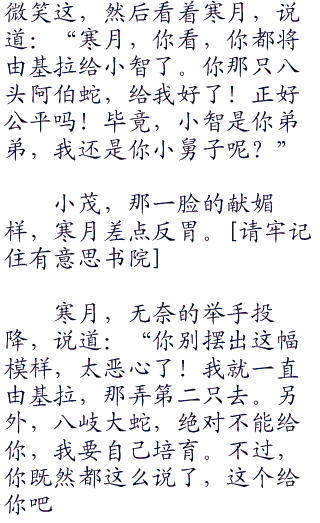 微笑这，然后看着寒月，说
道：“寒月，你看，你都将
由基拉给小智了。你那只八
头阿伯蛇，给我好了！正好
公平吗！毕竟，小智是你弟
弟，我还是你小舅子呢？”
小茂，那一脸的献媚
样，寒月差点反胃。[请牢记
住有意思书院]
寒月，无奈的举手投
降，说道：“你别摆出这幅
模样，太恶心了！我就一直
由基拉，那弄第二只去。另
外，八岐大蛇，绝对不能给
你，我要自己培育。不过，
你既然都这么说了，这个给
你吧